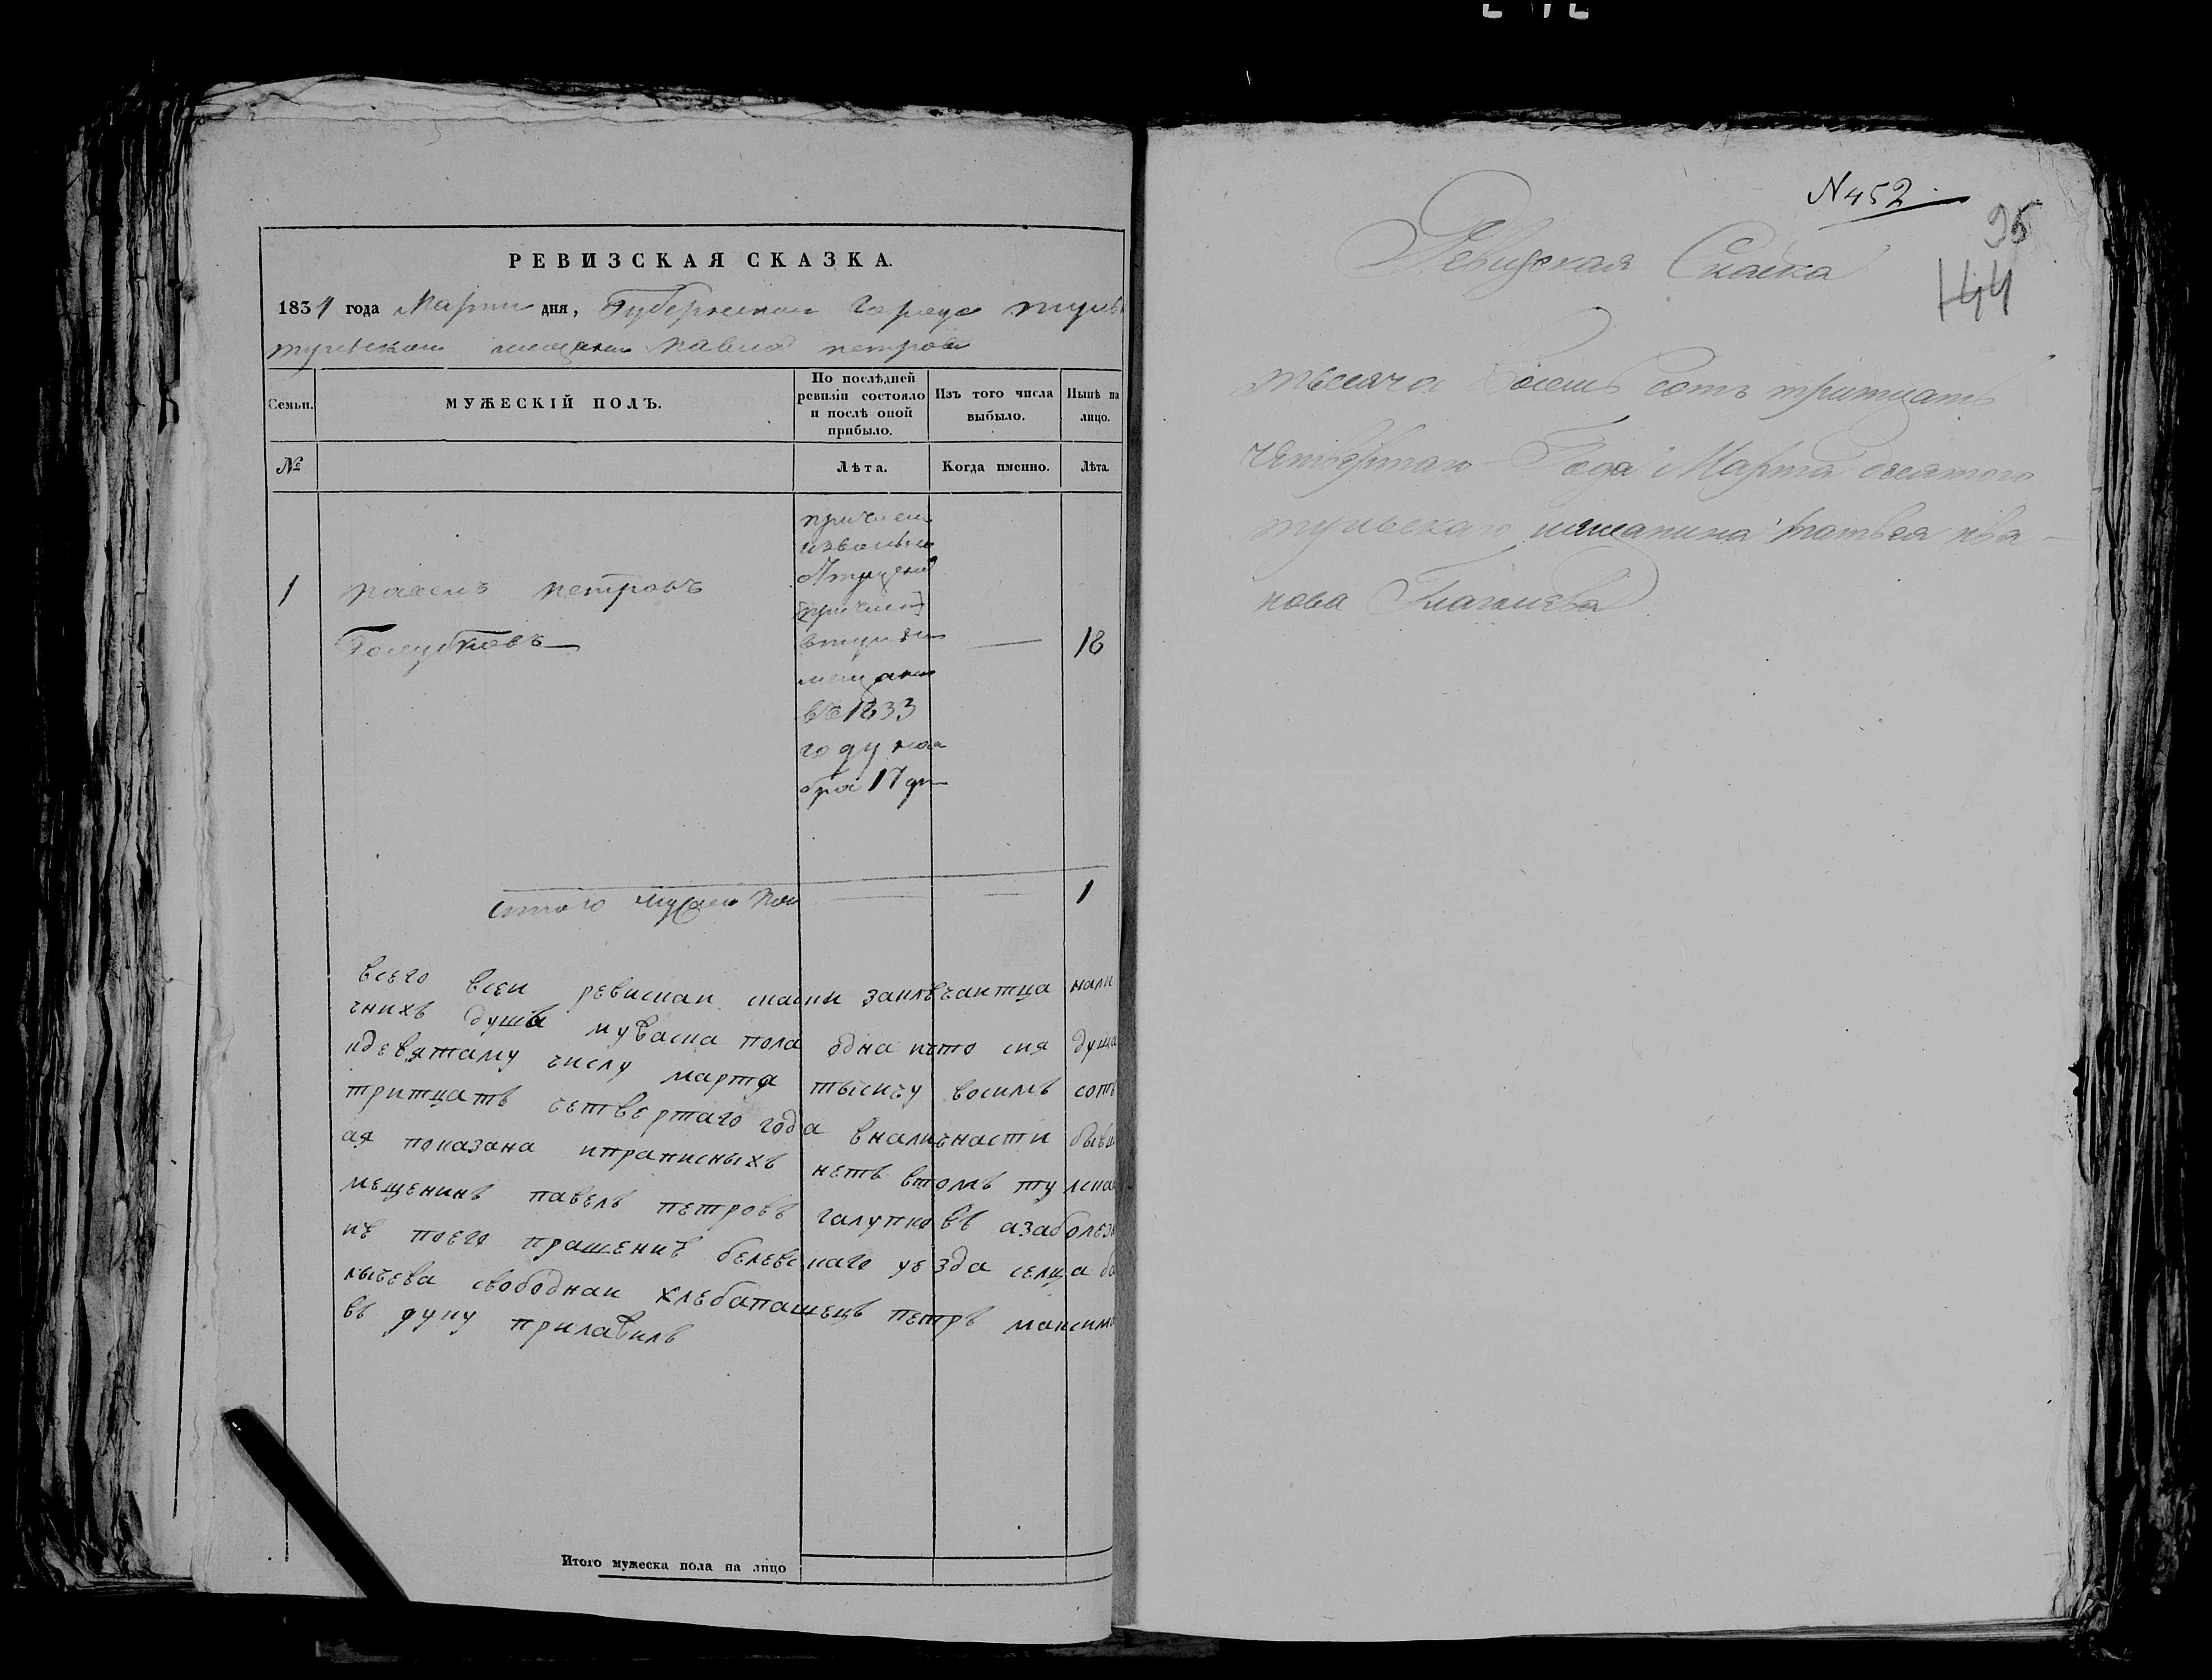 РЕВИЗСКАЯ СКАЗКА.
1834 года Марта дня, Губернскаго Города Тулы
тульскаго мещанина павла петрова
Семьи.
МУЖЕСКІЙ ПОЛЪ.
По послѣдней ревизіи состояло и послѣ оной прибыло.
Изъ того числа выбыло.
Нынѣ на лицо.
№
Лѣта.
Когда именно.
Лѣта
1
павелъ петровъ
Голубковъ
причислен
втульские
мещане
1833
году ноя
бря 17 дн
—
18
итого мужеска пола
1
всего
ревискаи скаски заключаитца нали
чнихъ душъ мужаска пола одна што сия душа
кдевятаму числу марта тысичу восимъ сотъ
тритцать четвертаго года вналичнасти бывш
ая показана ипраписныхъ нетъ втомъ тулскаи
мещенинъ павелъ петровъ галупковъ азаболезн
поего пращению белевскаго уезда селца
свободнаи хлебапашецъ петръ максимо
въ руку прилажилъ
Итого мужеска пола на лицо
N 452
95
144
Ревизская Скаска
тысяча восемь сотъ тритцать
четвертаго Года Марта десятого
тульскаго мещанина матвея ива
нова